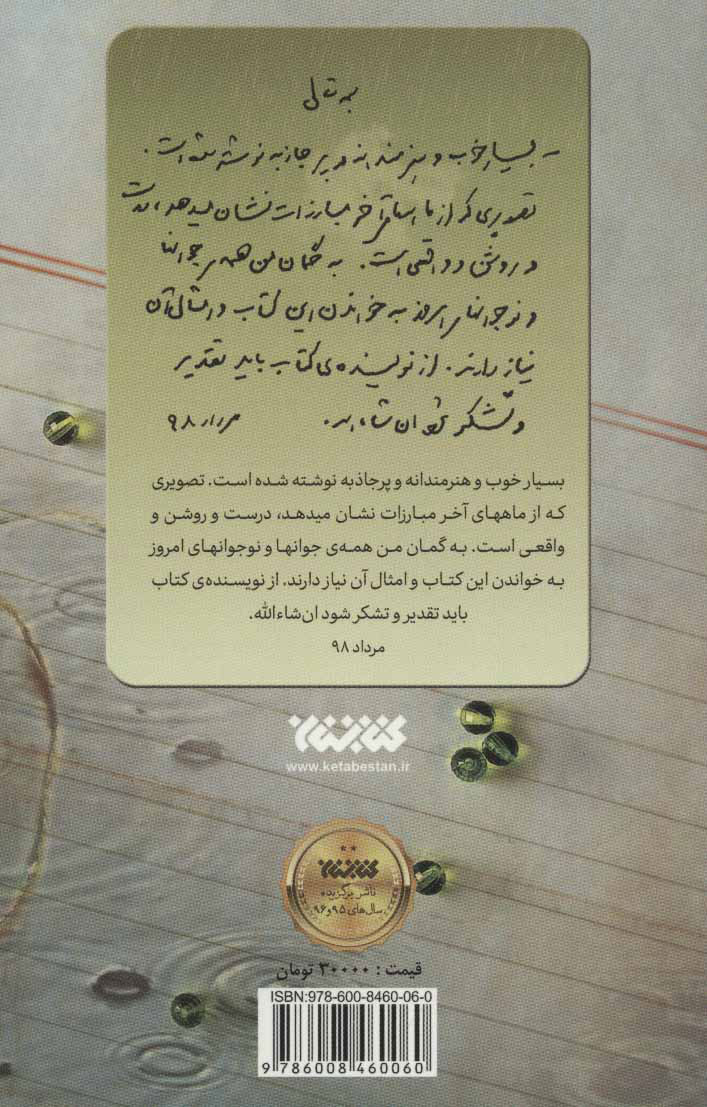 بسمه تعالی
- بسیار خوب و هنرمندانه و پرجاذبه نوشته شده است.
تصویری که از ماههای آخر مبارزات نشان میدهد، درست
و روشن و واقعی است. به گمان من همه‌ی جوانها
و نوجوانهای امروز به خواندن این کتاب و امثال آن
نیاز دارند. از نویسنده‌ی کتاب باید تقدیر
و تشکر شود ان شاءالله. مرداد ۹۸
بسیار خوب و هنرمندانه و پرجاذبه نوشته شده است. تصویری
که از ماههای آخر مبارزات نشان میدهد، درست و روشن و
واقعی است. به گمان من همه‌ی جوانها و نوجوانهای امروز
به خواندن این کتاب و امثال آن نیاز دارند. از نویسنده‌ی کتاب
باید تقدیر و تشکر شود ان‌شاءالله.
مرداد ۹۸
کتابستان
www.ketabestan.ir
کتابستان
ناشر برگزیده
سال‌های ۹۵ و ۹۶
قیمت : ۳۰۰۰۰ تومان
ISBN:978-600-8460-06-0
9 786008 460060